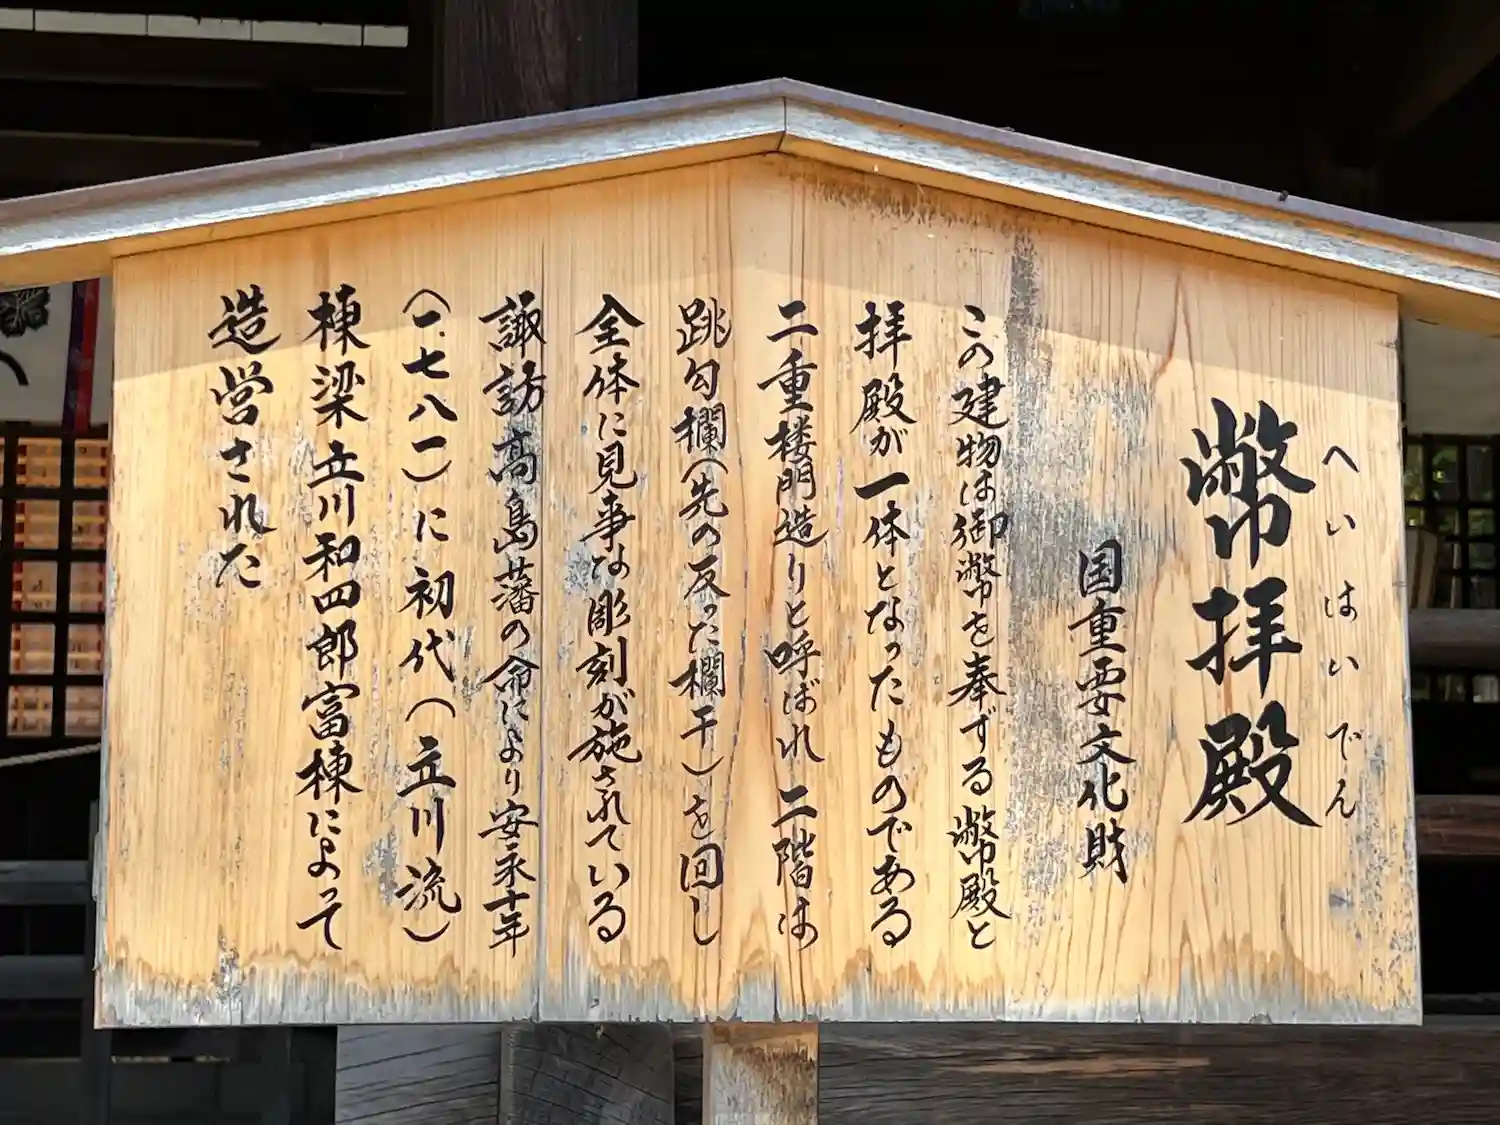 へいはいでん
幣拝殿
国重要文化財
この建物は御幣を奉ずる幣殿と
拝殿が一体となったものである
二重楼門造りと呼ばれ二階は
跳勾欄(先の反った欄干)を回し
全体に見事な彫刻が施されている
諏訪高島藩の命により安永十年
(一七八一)に初代(立川流)
棟梁立川和四郎富棟によって
造営された